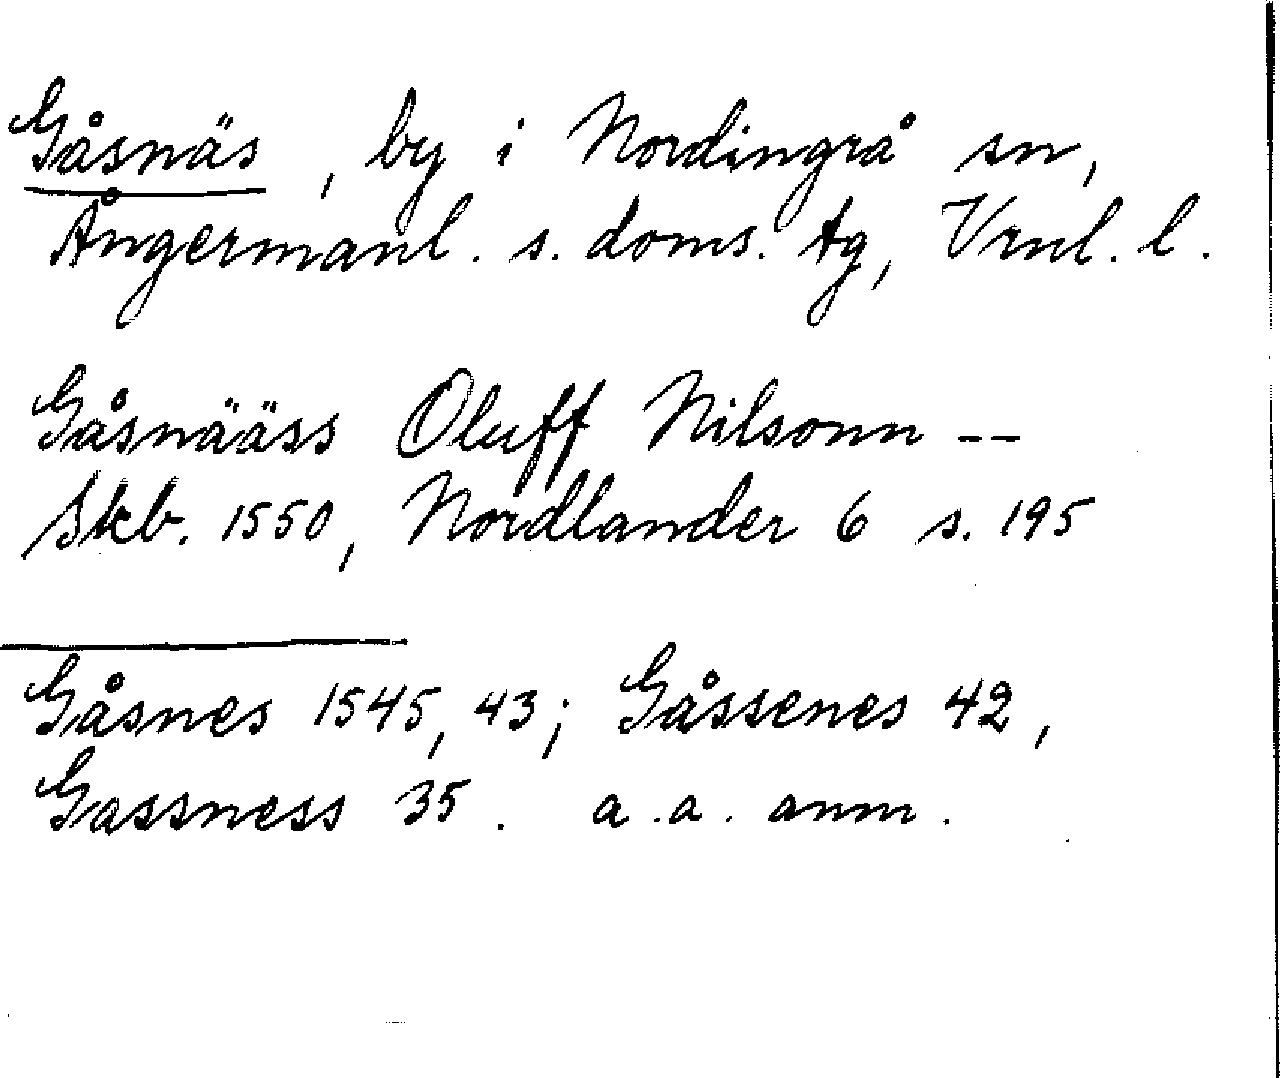 Gåsnäs, by i Nordingrå sn,
Ångermanl. s. doms. tg, Vrnl. l.
Gåsnääss Oluff Nilsonn --
Skb. 1550, Nordlander 6 s. 195
Gåsnes 1545, 43; Gåssenes 42,
Gassness 35. a.a. anm.